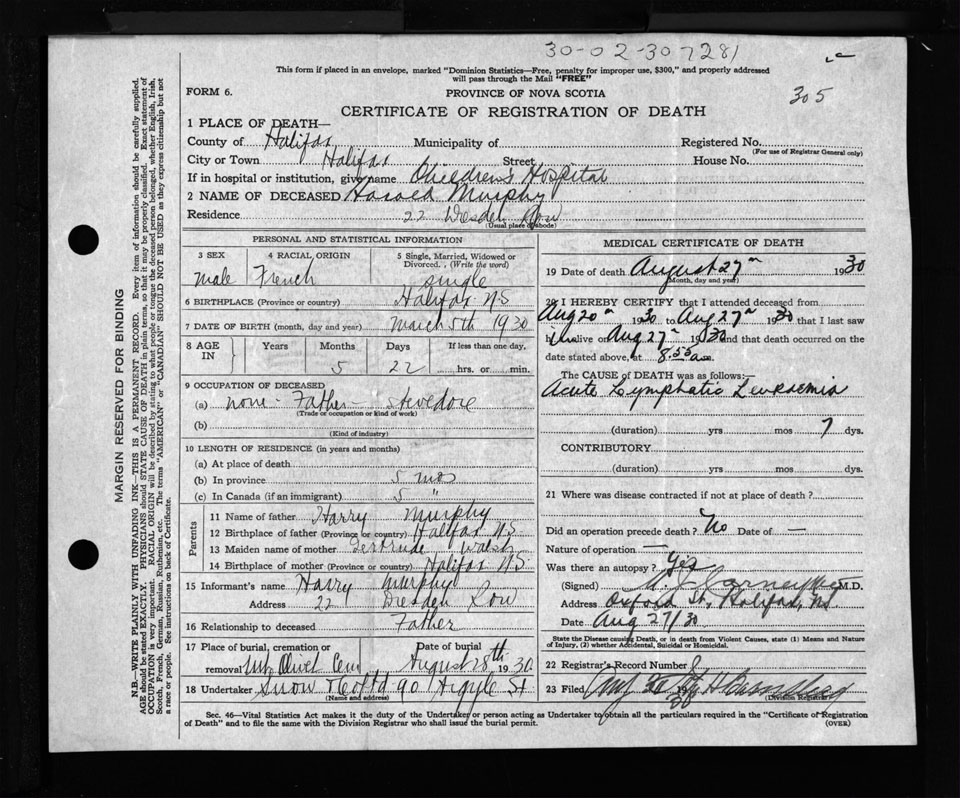 30-02-307281
This form if placed in an envelope, marked "Dominion Statistics—Free, penalty for improper use, $300," and properly addressed
will pass through the Mail "FREE"
305
FORM 6.
PROVINCE OF NOVA SCOTIA
CERTIFICATE OF REGISTRATION OF DEATH
1 PLACE OF DEATH—
County of Halifax Municipality of Registered No.
(For use of Registrar General only)
City or Town Halifax Street House No.
If in hospital or institution, give name Children's Hospital
2 NAME OF DECEASED Harold Murphy
Residence 22 Dresden Row
(Usual place of abode)
PERSONAL AND STATISTICAL INFORMATION
3 SEX 4 RACIAL ORIGIN 5 Single, Married, Widowed or
Divorced. (Write the word)
male French single
6 BIRTHPLACE (Province or country) Halifax NS
7 DATE OF BIRTH (month, day and year) March 5th 1930
8 AGE IN Years Months Days If less than one day,
5 22 hrs. or min.
9 OCCUPATION OF DECEASED
(a) none - Father - Stevedore
(Trade or occupation or kind of work)
(b)
(Kind of industry)
10 LENGTH OF RESIDENCE (in years and months)
(a) At place of death
(b) In province 5 mos
(c) In Canada (if an immigrant) 5 "
Parents
11 Name of father Harry Murphy
12 Birthplace of father (Province or country) Halifax NS
13 Maiden name of mother Gertrude Walsh
14 Birthplace of mother (Province or country) Halifax NS
15 Informant's name Harry Murphy
Address 22 Dresden Row
16 Relationship to deceased Father
17 Place of burial, cremation or Date of burial
removal Mt Olivet Cem August 28th 1930
18 Undertaker Snow & Co Ltd 90 Argyle St
(Name and address)
MEDICAL CERTIFICATE OF DEATH
19 Date of death August 27th 1930
(Month, day and year)
20 I HEREBY CERTIFY that I attended deceased from
Aug 20th 1930 to Aug 27th 1930 that I last saw
him alive on Aug 27th 1930 and that death occurred on the
date stated above, at 8.55 a m.
The CAUSE OF DEATH was as follows:—
Acute Lymphatic Leukaemia
(duration) yrs mos 7 dys.
CONTRIBUTORY
(duration) yrs. mos. dys.
21 Where was disease contracted if not at place of death?
Did an operation precede death? No Date of —
Nature of operation —
Was there an autopsy? Yes
(Signed) M.D.
Address Oxford St, Halifax, NS
Date Aug 27/30
State the Disease causing Death, or in death from Violent Causes, state (1) Means and Nature
of Injury, (2) whether Accidental, Suicidal or Homicidal.
22 Registrar's Record Number
23 Filed Aug 30 19
(Division Registrar)
Sec. 46—Vital Statistics Act makes it the duty of the Undertaker or person acting as Undertaker to obtain all the particulars required in the "Certificate of Registration
of Death" and to file same with the Division Registrar who shall issue the burial permit.
(OVER)
MARGIN RESERVED FOR BINDING
N.B.—WRITE PLAINLY WITH UNFADING INK—THIS IS A PERMANENT RECORD. Every item of information should be carefully supplied.
AGE should be stated EXACTLY. PHYSICIANS should STATE CAUSE OF DEATH in plain terms, so that it may be properly classified. Exact statement of
OCCUPATION is very important. RACIAL ORIGIN will be described by stating to what people or tongue the deceased person belonged, whether English, Irish,
Scotch, French, German, Russian, Ruthenian, etc. The terms "AMERICAN" or "CANADIAN" SHOULD NOT BE USED as they express citizenship but not
a race or people. See instructions on back of Certificate.